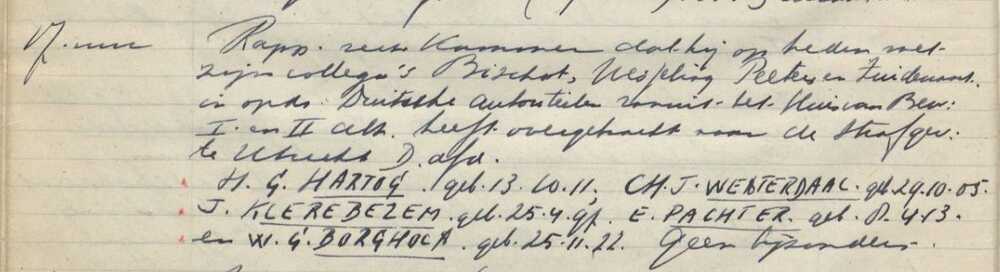 17.- uur Rapp. rech. Kammer dat hij op heden met
zijn collega's Bischot, Wesseling Peeters en Zuidervaart.
in opdr. Duitsche autoriteiten vanuit het Huis van Bew:
I en II alh. heeft overgebracht naar de Strafgev:
te Utrecht D. afd.
H. G. HARTOG. geb. 13.10.11, CH. J. WESTERDAAL. geb 29.10.05.
J. KLEREBEZEM. geb. 25.4.97. E. PACHTER. geb. 8.4.13.
en W. G. BORGHOLS. geb. 25.11.22. Geen bijzonders.